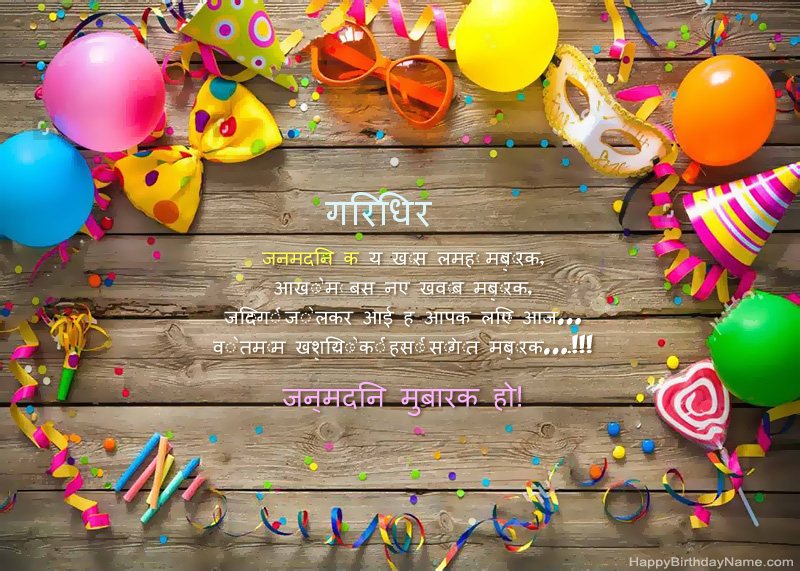 गरिधिर
जनमदनि क य खास लमहा मबारक,
आखों में बस नए खवाब मबारक,
जदिगी जो लेकर आई ह आपक लएि आज...
वो तमाम खशयिों की हसीं सौगात मबारक....!!!
जन्मदनि मुबारक हो!
HappyBirthdayName.com